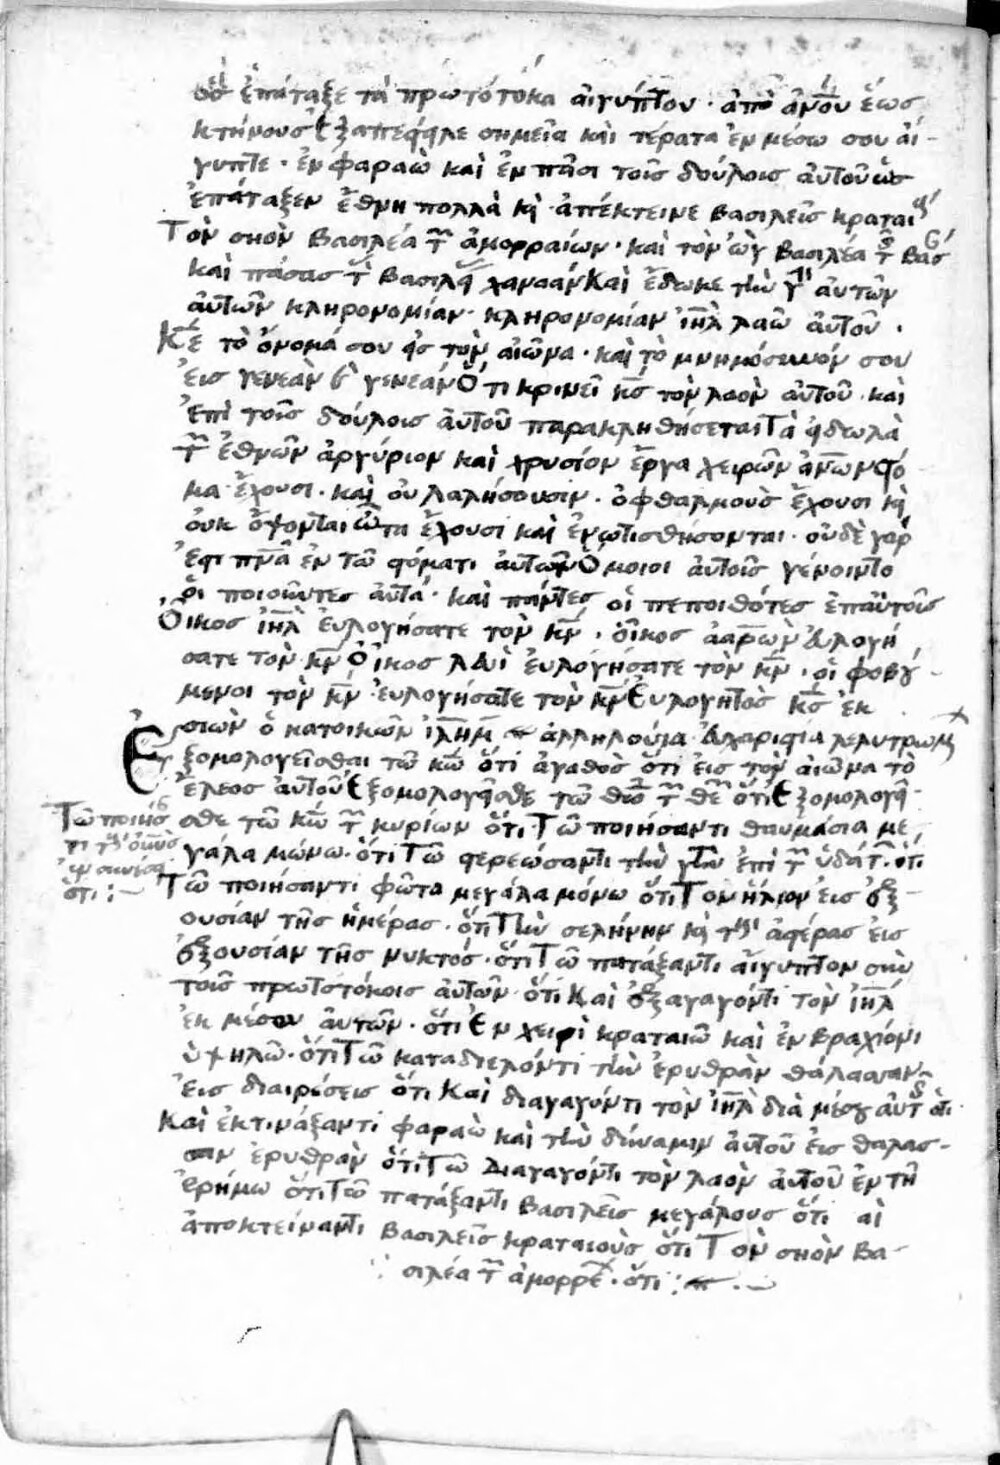 ὃς ἐπάταξε τὰ πρωτότόκα ἀιγύπτου · ἀπὸ ἀνου ἕωσ
κτήνουσ Ἐξαπέστειλε σημεῖα καὶ τέρατα ἐν μέσω σου ἀί-
γυπτε · ἐν φαραὼ καὶ ἐν πᾶσι τοῖσ δούλοισ αὐτοῦ ὡσ
ἐπάταξεν ἔθνη πολλὰ κὶ ἀπέκτεινε βασιλεῖσ κραται
Τὸν σηὸν βασιλέα τ ἀμορραίων · καὶ τὸν ὢγ βασιλέα τ βασ
καὶ πάσασ τ βασιλ χαναάν Καὶ ἔδωκε τὴν γῆ αὐτῶν
αὐτῶν κληρονομίαν · κληρονομίαν ἰηλ λαῶ αὐτοῦ ·
Κε τὸ ὄνομά σου εἰσ τὸν αἰῶνα · καὶ τὸ μνημόσυνόν σου
ἐισ γενεὰν ϗ γενεάν Ὅτι κρινεῖ κσ τὸν λαὸν αὐτοῦ · καὶ
ἐπὶ τοῖσ δούλοισ αὐτοῦ παρακληθήσεται Τὰ εἴδωλὰ
τ ἐθνῶν ἀργύριον καὶ χρυσίον ἔργα χειρῶν ἀνων Στό
μα ἔχουσι · καὶ οὐ λαλήσουσιν · ὀφθαλμοὺσ ἔχουσι κὶ
οὐκ ὄψονται ὦτα ἔχουσι καὶ ἐνωτισθήσονται · οὐδὲ γάρ
ἐστι πνα ἐν τῶ στόματι αὐτῶν Ὅμοιοι αὐτοῖσ γένοιντο
ὁι ποιοῦντεσ αὐτά · καὶ πάντεσ οἱ πεποιθότεσ ἐπαὐτοῖσ
Οἶκοσ ιηλ ἐυλογήσατε τὸν κν · ὄικοσ ἀαρὼν ἐυλογή
σατε τὸν κν Οἶκοσ λευὶ ἐυλογήσατε τὸν κν · οἱ φοβού-
μενοι τὸν κν ἐυλογήσατε τὸν κν Ἐυλογητὸσ κσ ἐκ
σιὼν ὁ κατοικῶν ιλημ ἀλληλούια
Ἐξομολογεῖσθαι τῶ κω ὅτι ἀγαθὸσ ὅτι ἐισ τὸν αἰῶνα τὸ
ἔλεοσ αὐτοῦ Ἐξομολογεῖσθε τῶ θεῶ τ θε ὅτι Ἐξομολογεῖ-
Τῶ ποιήσ σθε τῶ κω τ κυρίων ὅτι · Τῶ ποιήσαντι θαυμάσια με
γάλα μόνω · ὅτι Τῶ στερεώσαντι τὴν γῆν ἐπὶ τ ὑδάτ · ὅτι
ὅτι : Τῶ ποιήσαντι φῶτα μεγάλα μόνω ὅτι Τὸν ἥλιον ἐισ ἐξ-
ουσίαν τῆσ ἡμέρασ · ὅτι Τὴν σελήνην κὶ τ ἀστέρασ ἐισ
ἐξουσίαν τῆσ νυκτόσ · ὅτι Τῶ πατάξαντι αἴγυπτον σὺν
τοῖσ πρωτοτόκοισ αὐτῶν ὅτι Καὶ ἐξαγαγόντι τὸν ἰηλ
ἐκ μέσου αὐτῶν · ὅτι Ἐν χειρὶ κραταιᾶ καὶ ἐν βραχίονι
ὑψηλῶ · ὅτι Τῶ καταδιελόντι τὴν ἐρυθρὰν θάλασσαν
ἐισ διαιρέσεισ ὅτι Καὶ διαγαγόντι τὸν ἰηλ διὰ μέσου αὐτ ὅτι
Καὶ ἐκτινάξαντι φαραὼ καὶ τὴν δύναμιν αὐτοῦ ἐισ θαλασ-
σαν ἐρυθρὰν ὅτι Τῶ διαγαγόντι τὸν λαὸν αὐτοῦ ἐν τῆ
ἐρήμω ὅτι Τῶ πατάξαντι βασιλεῖσ μεγάλουσ ὅτι
ἀποκτείναντι βασιλεῖσ κραταιοὺσ ὅτι Τὸν σηὸν βα-
σιλέα τ ἀμορρ · ὅτι :